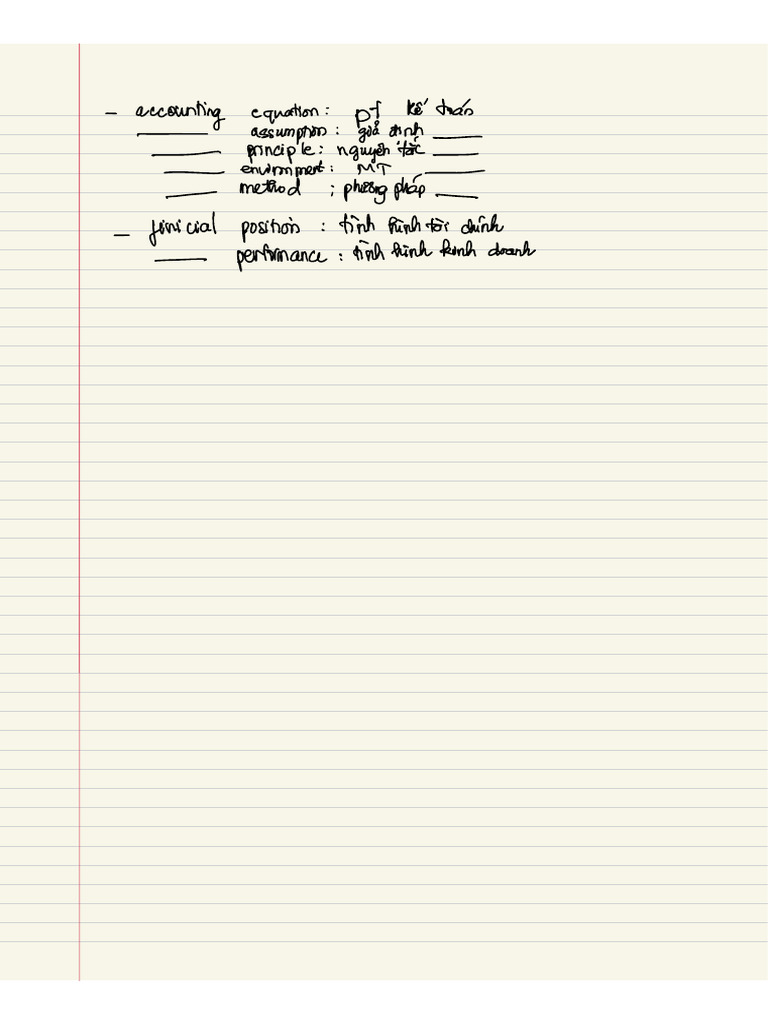 - accounting equation: pt kế toán
______ assumption: giả định ______
______ principle: nguyên tắc ______
______ environment: MT ______
______ method: phương pháp ______
- finicial position: tình hình tài chính
______ performance: tình hình kinh doanh